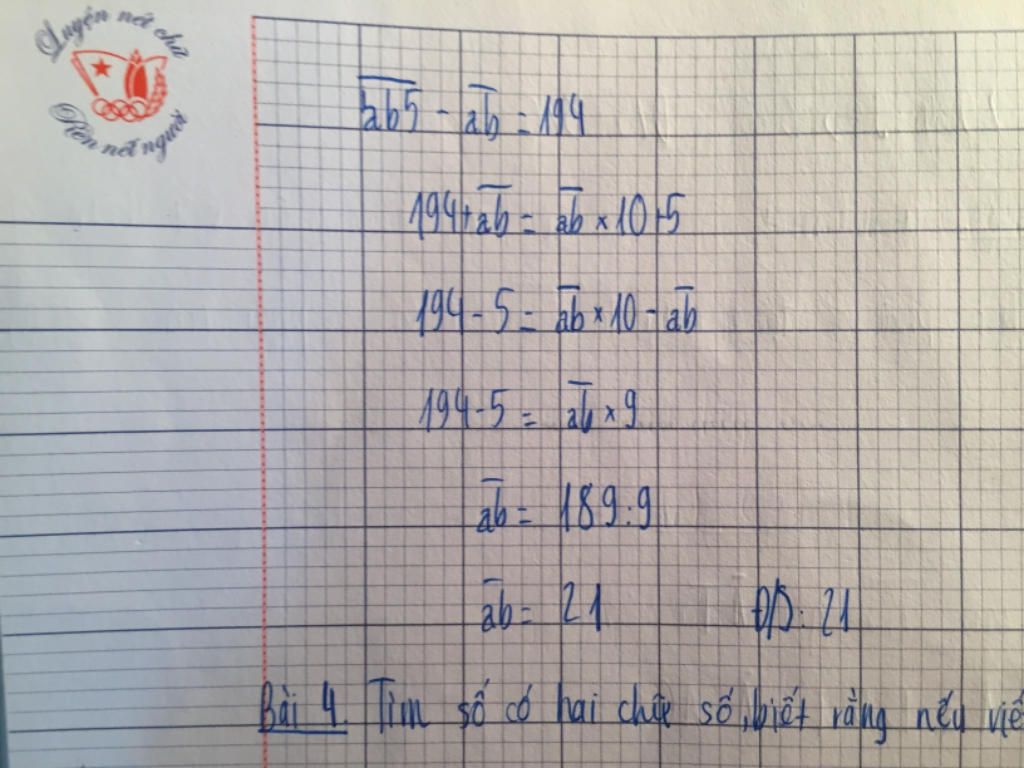 Luyện nét chữ
Rèn nết người
ab5 - ab = 194
194 + ab = ab × 10 + 5
194 - 5 = ab × 10 - ab
194 - 5 = ab × 9
ab = 189 : 9
ab = 21 Đ/S: 21
Bài 4. Tìm số có hai chữ số, biết rằng nếu viế